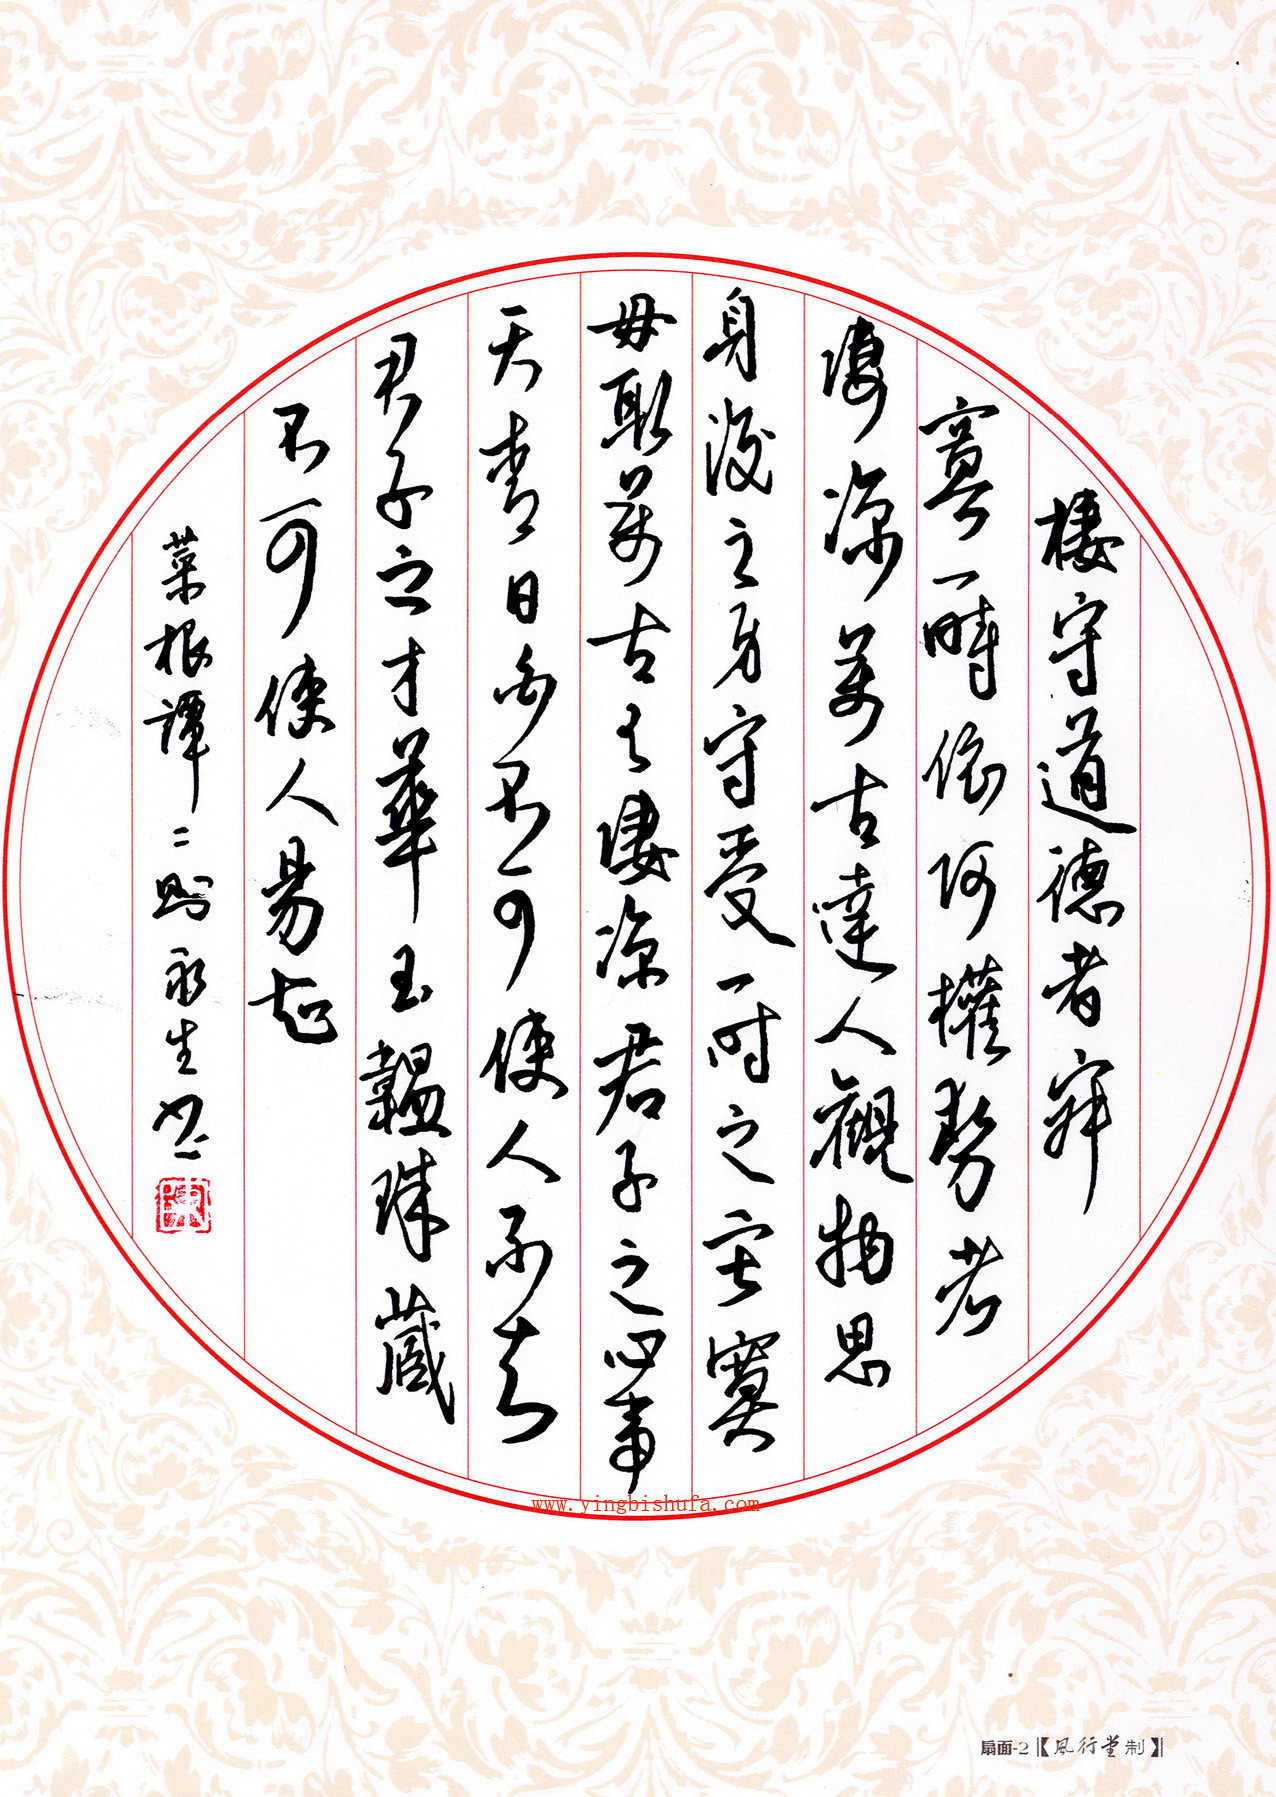 棲守道德者寂
寞一時依阿權勢者
凄凉萬古達人觀物思
身後之身宁受一时之寂寞
毋取萬古之凄凉君子之心事
天青日白不可使人不知
君子之才華玉韞珠藏
不可使人易知
菜根譚二則永生书
陳
www.yingbishufa.com
扇面-2【风行堂制】